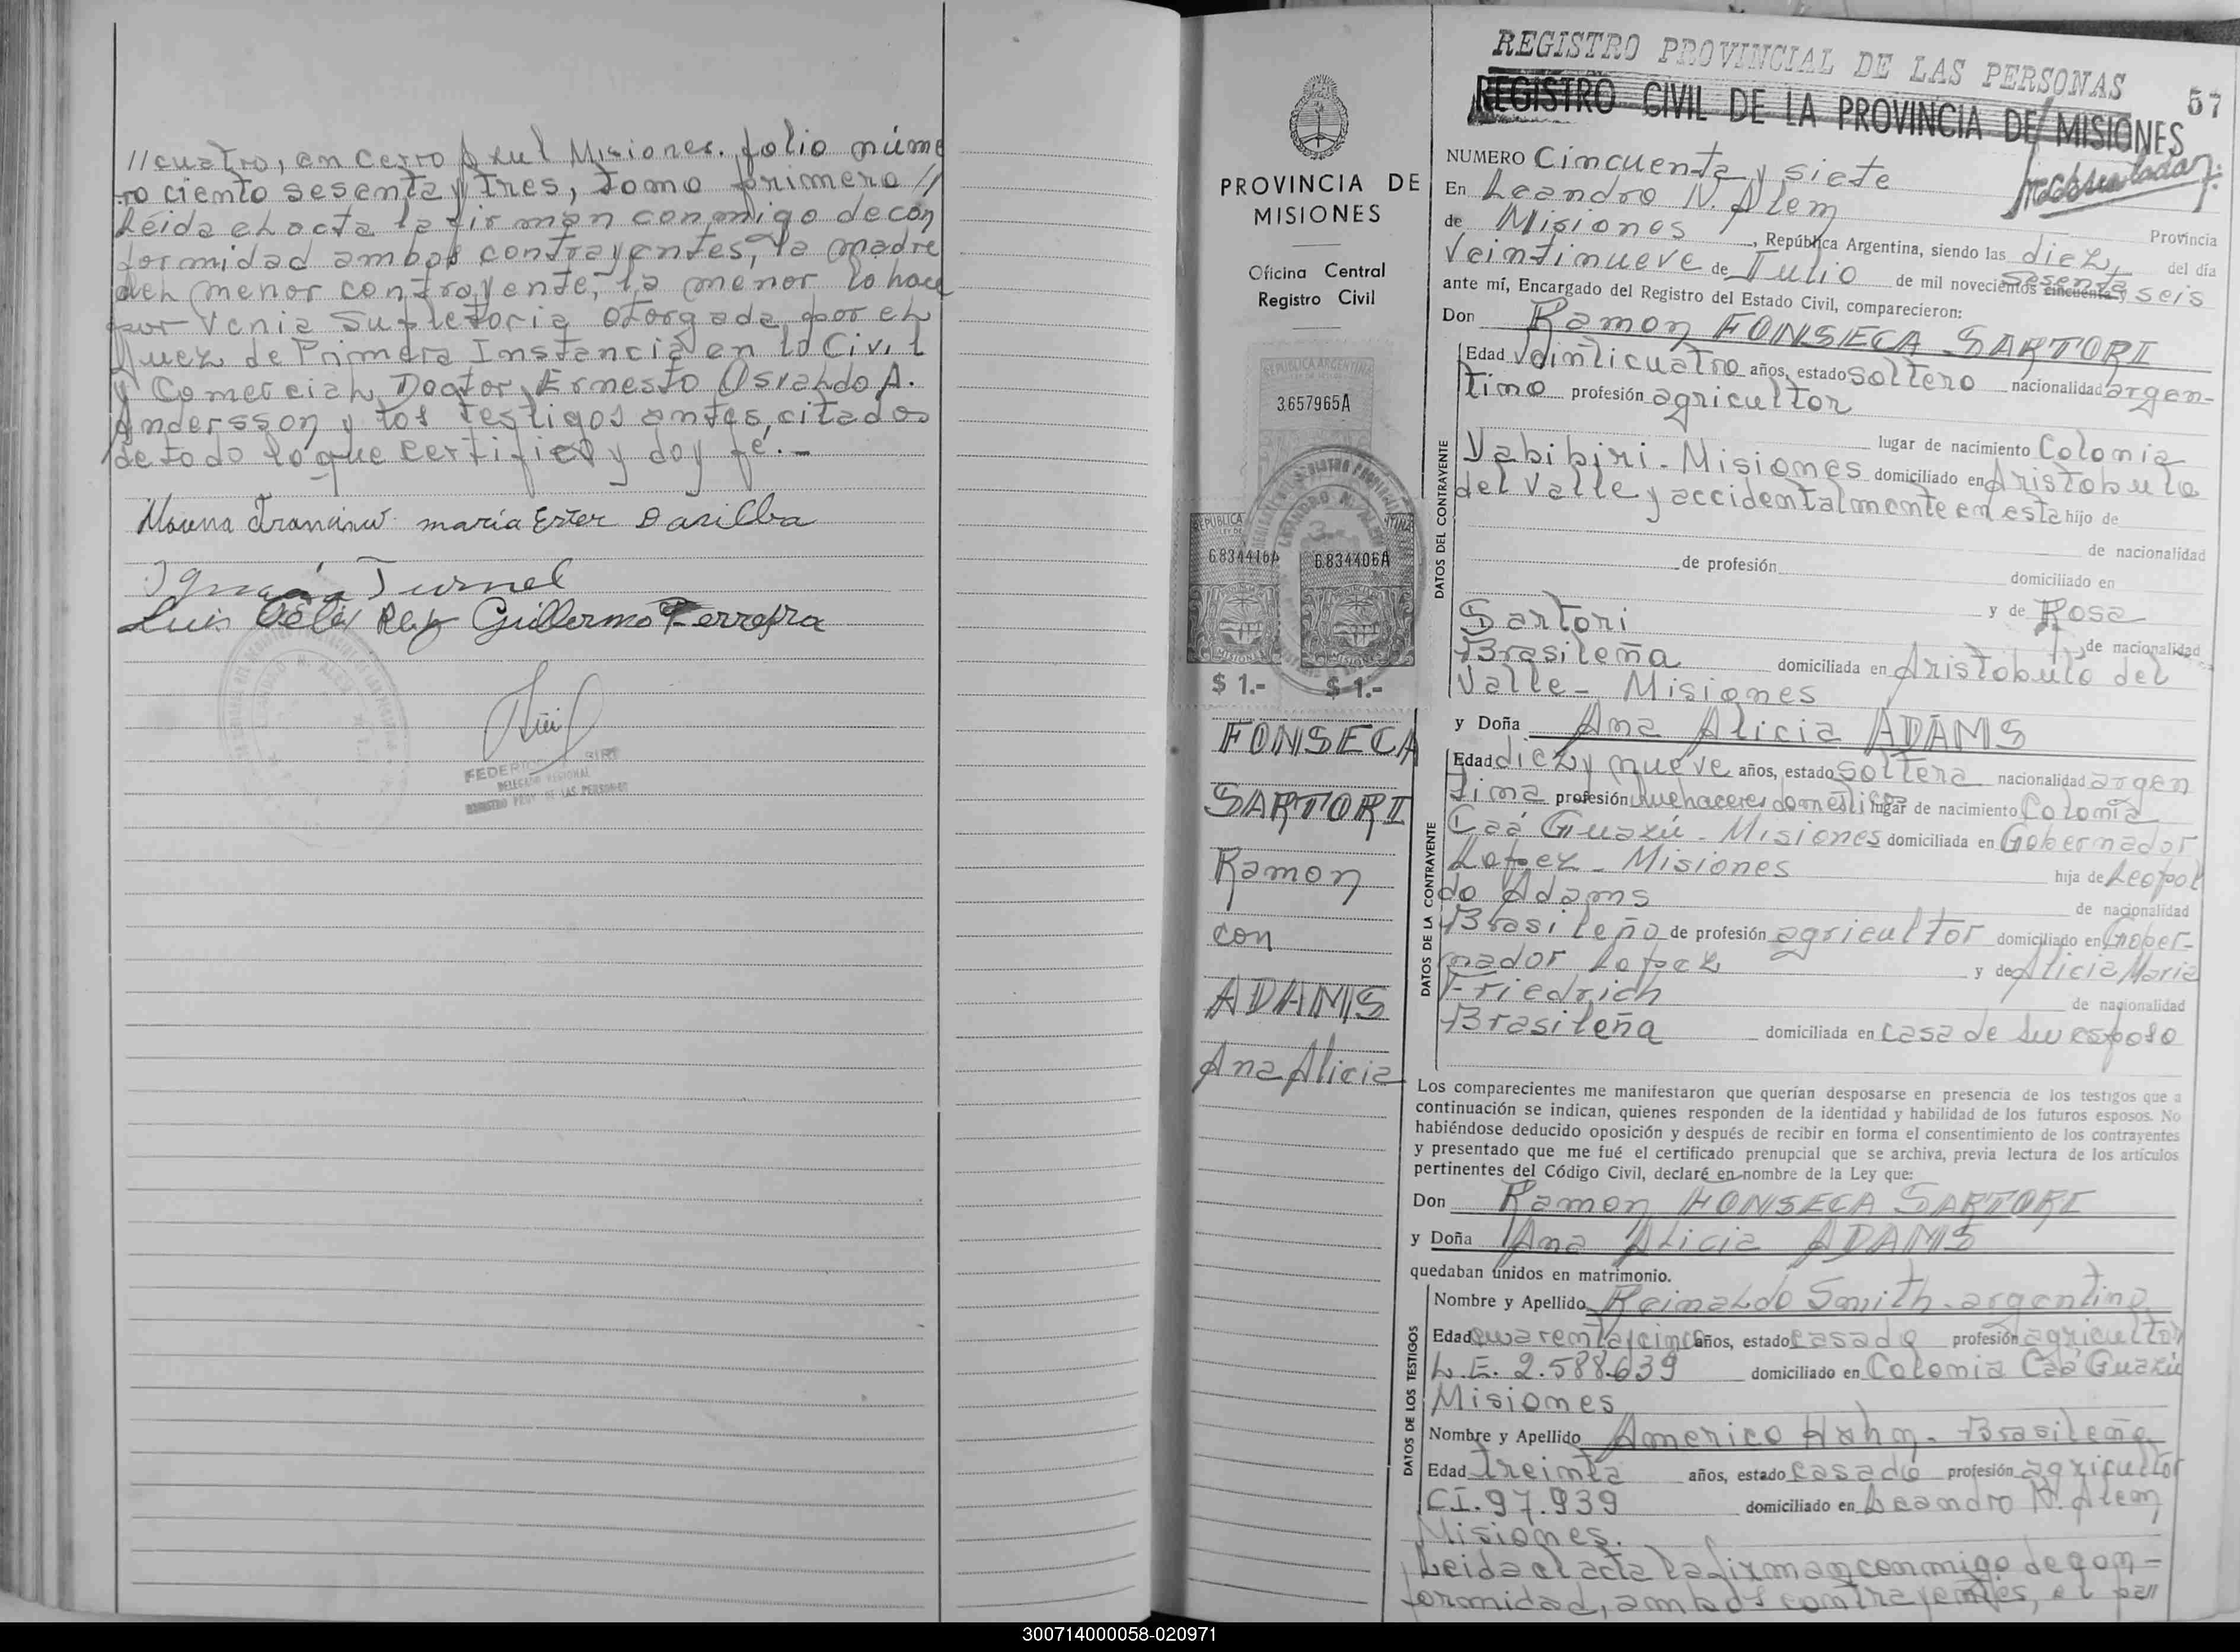 //cuatro, en Cerro Azul Misiones. folio núme
ro ciento sesenta y tres, tomo primero //
Léida el acta la firman conmigo de con
formidad ambos contrayentes, la madre
del menor contrayente, la menor lo hace
por Venia Supletoria otorgada por el
Juez de Primera Instancia en lo Civil
y Comercial Doctor Ernesto Osvaldo A.
Andersson y los testigos antes citados
de todo lo que certifico y doy fé.-
maría Ester Dasilba
Turnel
Luis Guillermo Ferreyra
FEDERICO
DELEGADO REGIONAL
REGISTRO PROV. DE LAS PERSONAS
PROVINCIA DE
MISIONES
Oficina Central
Registro Civil
REPUBLICA ARGENTINA
3.657965A
6.834416A
6.834406A
MISIONES
MISIONES
$ 1.-
$ 1.-
FONSECA
SARTORI
Ramon
con
ADAMS
Ana Alicia
REGISTRO PROVINCIAL DE LAS PERSONAS
57
REGISTRO CIVIL DE LA PROVINCIA DE MISIONES
NUMERO Cincuenta y siete
En Leandro N. Alem
de Misiones Provincia
, República Argentina, siendo las diez, del día
Veintinueve de Julio de mil novecientos cincuenta y sesenta seis
ante mí, Encargado del Registro del Estado Civil, comparecieron:
Don Ramon FONSECA SARTORI
DATOS DEL CONTRAYENTE
Edad Veinticuatro años, estado soltero nacionalidad argen-
tino profesión agricultor
lugar de nacimiento Colonia
Yabibiri - Misiones domiciliado en Aristobulo
del Valle y accidentalmente en esta hijo de
de nacionalidad
de profesión domiciliado en
y de Rosa
Sartori de nacionalidad
Brasileña domiciliada en Aristobulo del
Valle - Misiones
y Doña Ana Alicia ADAMS
DATOS DE LA CONTRAYENTE
Edad diez y nueve años, estado soltera nacionalidad argen
tina profesión quehaceres domésticos lugar de nacimiento Colonia
Caá Guazú - Misiones domiciliada en Gobernador
Lopez - Misiones hija de Leopol
do Adams de nacionalidad
Brasileño de profesión agricultor domiciliado en Gober-
nador Lopez y de Alicia Maria
Friedrich de nacionalidad
Brasileña domiciliada en casa de su esposo
Los comparecientes me manifestaron que querían desposarse en presencia de los testigos que a
continuación se indican, quienes responden de la identidad y habilidad de los futuros esposos. No
habiéndose deducido oposición y después de recibir en forma el consentimiento de los contrayentes
y presentado que me fué el certificado prenupcial que se archiva, previa lectura de los artículos
pertinentes del Código Civil, declaré en nombre de la Ley que:
Don Ramon FONSECA SARTORI
y Doña Ana Alicia ADAMS
quedaban unidos en matrimonio.
DATOS DE LOS TESTIGOS
Nombre y Apellido Reinaldo Smith - argentino
Edad cuarenta y cinco años, estado casado profesión agricultor
L.E. 2.588.639 domiciliado en Colonia Caá Guazú
Misiones
Nombre y Apellido Americo Hahn - Brasileño
Edad treinta años, estado casado profesión agricultor
C.I. 97.939 domiciliado en Leandro N. Alem
Misiones.
Leida el acta la firman conmigo de con-
formidad, ambos contrayentes, el pa//
300714000058-020971